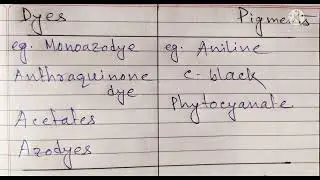 Dyes Pigments
eg. Monoazodye eg. Aniline
Anthraquinone c-black
dye Phytocyanate
Acetates
Azodyes